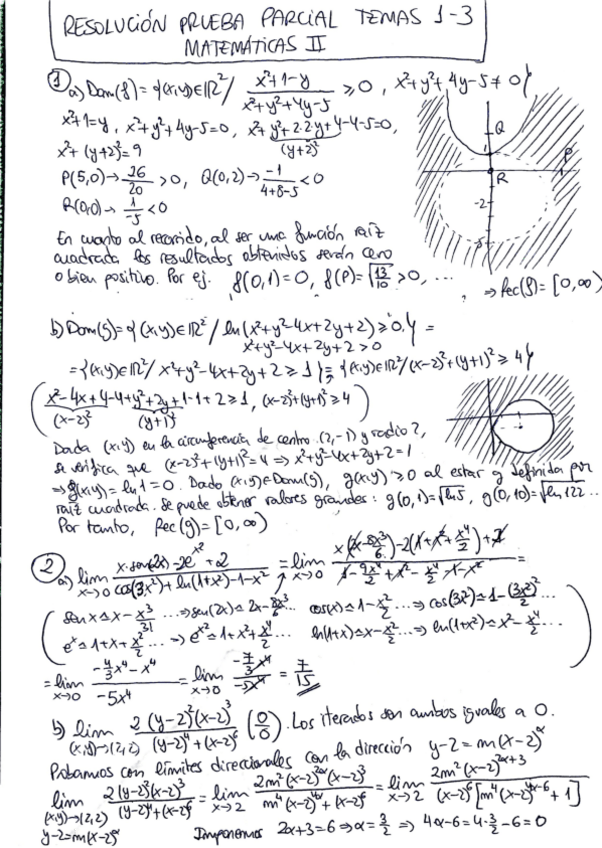 RESOLUCIÓN PRUEBA PARCIAL TEMAS 1-3
MATEMÁTICAS II
① a) Dom(f) = {(x,y)∈ℝ² / (x²+1-y)/(x²+y²+4y-5) ≥ 0, x²+y²+4y-5 ≠ 0}
x²+1=y, x²+y²+4y-5=0, x²+y²+2·2y+4-4-5=0,
(y+2)²
x²+(y+2)²=9
P(5,0)→ 26/20 >0, Q(0,2)→ -1/(4+8-5) <0
R(0,0)→ 1/-5 <0
Q
P
R
1
-2
En cuanto al recorrido, al ser una función raíz
cuadrada los resultados obtenidos serán cero
o bien positivo. Por ej. f(0,1)=0, f(P)=√(13/10) >0, ...
⇒ Rec(f)=[0,∞)
b) Dom(g)={(x,y)∈ℝ² / ln(x²+y²-4x+2y+2) ≥ 0,} =
x²+y²-4x+2y+2 >0
={(x,y)∈ℝ² / x²+y²-4x+2y+2 ≥ 1} = {(x,y)∈ℝ² / (x-2)²+(y+1)² ≥ 4}
(x²-4x+4-4+y²+2y+1-1+2 ≥ 1, (x-2)²+(y+1)² ≥ 4)
(x-2)² (y+1)²
Dada (x,y) en la circunferencia de centro (2,-1) y radio 2,
se verifica que (x-2)²+(y+1)²=4 ⇒ x²+y²-4x+2y+2=1
⇒ g(x,y)=ln1=0. Dado (x,y)∈Dom(g), g(x,y) ≥ 0 al estar g definida por
raíz cuadrada. Se puede obtener valores grandes: g(0,1)=√ln5, g(0,10)=√ln122 ...
Por tanto, Rec(g)=[0,∞)
② a) lim x→0 (x·sen(2x)-2e^x²+2)/(cos(3x²)+ln(1+x²)-1-x²) = lim x→0 (x(2x-8x³/6)-2(1+x²+x⁴/2)+2)/(1-9x⁴/2+x²-x⁴/2-1-x²) =
(sen x ≃ x-x³/3! ... ⇒ sen(2x) ≃ 2x-8x³/6... cos(x) ≃ 1-x²/2 ... ⇒ cos(3x²) ≃ 1-(3x²)²/2 ...
e^x ≃ 1+x+x²/2 ... ⇒ e^x² ≃ 1+x²+x⁴/2 ... ln(1+x) ≃ x-x²/2 ... ⇒ ln(1+x²) ≃ x²-x⁴/2 ...)
= lim x→0 (-4/3x⁴-x⁴)/(-5x⁴) = lim x→0 (-7/3x⁴)/(-5x⁴) = 7/15
b) lim (x,y)→(2,2) 2(y-2)²(x-2)³/((y-2)⁴+(x-2)⁶) (0/0). Los iterados son ambos iguales a 0.
Probamos con límites direccionales con la dirección y-2=m(x-2)^α
lim (x,y)→(2,2) y-2=m(x-2)^α 2(y-2)²(x-2)³/((y-2)⁴+(x-2)⁶) = lim x→2 2m²(x-2)^2α(x-2)³/(m⁴(x-2)^4α+(x-2)⁶) = lim x→2 2m²(x-2)^2α+3/((x-2)⁶[m⁴(x-2)^4α-6+1])
Imponemos 2α+3=6 ⇒ α=3/2 ⇒ 4α-6=4·3/2-6=0